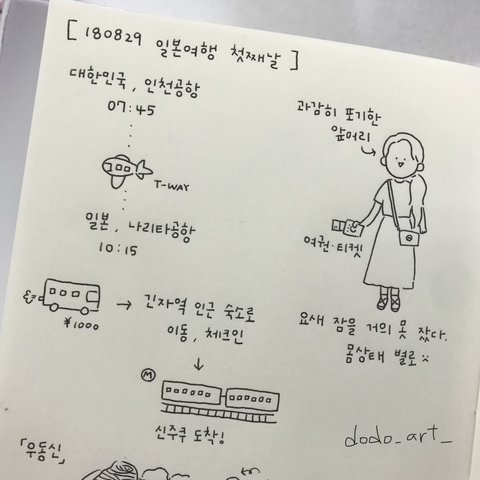 [ 180829 일본여행 첫째날 ]
대한민국, 인천공항
07:45
T-WAY
일본, 나리타공항
10:15
¥1000
→ 긴자역 인근 숙소로
이동, 체크인
↓
M
신주쿠 도착!
「우동신」
과감히 포기한
앞머리
여권·티켓
요새 잠을 거의 못 잤다.
몸상태 별로 :(
dodo_art_